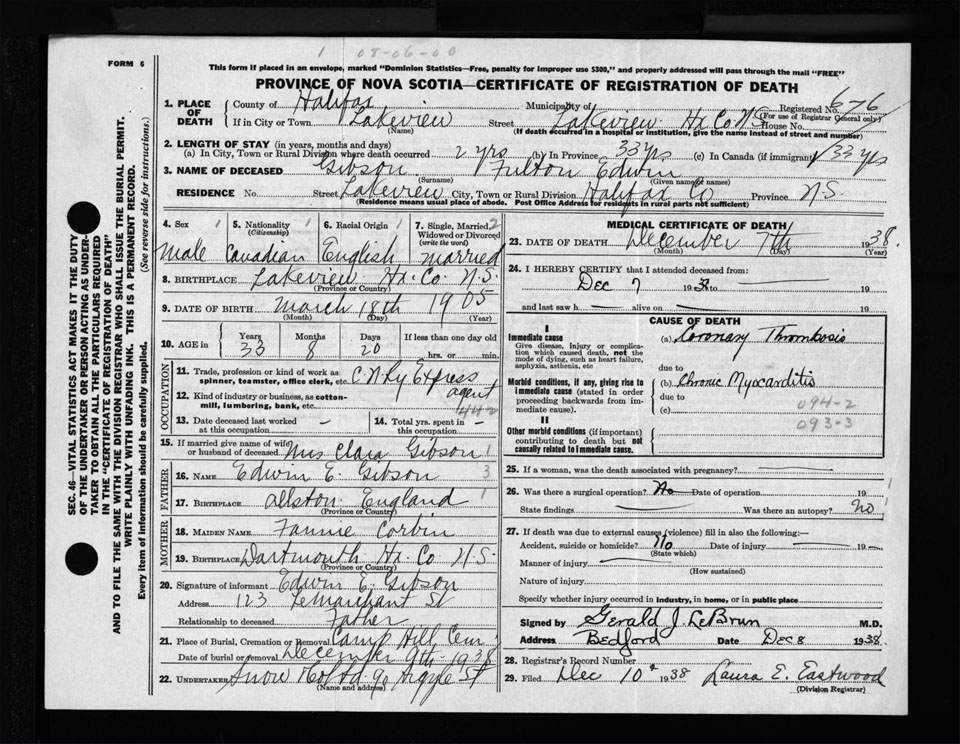 1 08-06-00
FORM 6
This form if placed in an envelope, marked "Dominion Statistics—Free, penalty for improper use $300," and properly addressed will pass through the mail "FREE"
PROVINCE OF NOVA SCOTIA—CERTIFICATE OF REGISTRATION OF DEATH
SEC. 46—VITAL STATISTICS ACT MAKES IT THE DUTY
OF THE UNDERTAKER OR PERSON ACTING AS UNDER-
TAKER TO OBTAIN ALL THE PARTICULARS REQUIRED
IN THE "CERTIFICATE OF REGISTRATION OF DEATH"
AND TO FILE THE SAME WITH THE DIVISION REGISTRAR WHO SHALL ISSUE THE BURIAL PERMIT.
WRITE PLAINLY WITH UNFADING INK. THIS IS A PERMANENT RECORD.
Every item of information should be carefully supplied. (See reverse side for instructions.)
1. PLACE OF DEATH { County of Halifax Municipality Registered No. 676
(For use of Registrar General only)
If in City or Town Lakeview Street Lakeview Hx Co. N.S. House No.
(Name) (If death occurred in a hospital or institution, give the name instead of street and number)
2. LENGTH OF STAY (in years, months and days)
(a) In City, Town or Rural Division where death occurred 2 yrs (b) In Province 33 yrs (c) In Canada (if immigrant) 33 yrs
3. NAME OF DECEASED Gibson Fulton Edwin
(Surname) (Given name or names)
RESIDENCE No. Street Lakeview City, Town or Rural Division Halifax Co Province N.S.
(Residence means usual place of abode. Post Office Address for residents in rural parts not sufficient)
4. Sex 1 5. Nationality 1 6. Racial Origin 1 7. Single, Married, 2
(Citizenship) Widowed or Divorced
(write the word)
Male Canadian English married
8. BIRTHPLACE Lakeview Hx. Co N.S.
(Province or Country)
9. DATE OF BIRTH March 18th 1905
(Month) (Day) (Year)
10. AGE in Years Months Days If less than one day
33 8 20 hrs. or min.
OCCUPATION
11. Trade, profession or kind of work as
spinner, teamster, office clerk, etc. C N Ry Express
agent
12. Kind of industry or business, as cotton-
mill, lumbering, bank, etc. 442
13. Date deceased last worked
at this occupation. —
14. Total yrs. spent in
this occupation. —
15. If married give name of wife
or husband of deceased Mrs Clara Gibson 1
FATHER
16. NAME Edwin E. Gibson 3
17. BIRTHPLACE Allston England 1
(Province or Country)
MOTHER
18. MAIDEN NAME Fannie Corbin
19. BIRTHPLACE Dartmouth Hx. Co N.S.
(Province or Country)
20. Signature of informant Edwin E. Gibson
Address 123 LeMarchant St
Relationship to deceased Father
21. Place of Burial, Cremation or Removal Camp Hill Cem
Date of burial or removal December 9th 1938
22. UNDERTAKER Snow & Co Ltd 90 Argyle St
(Name and address)
MEDICAL CERTIFICATE OF DEATH
23. DATE OF DEATH December 7th 1938.
(Month) (Day)
24. I HEREBY CERTIFY that I attended deceased from:
Dec 7 1938 to — 19
and last saw h — alive on — 19
CAUSE OF DEATH
I
Immediate cause
Give disease, injury or complica-
tion which caused death, not the
mode of dying, such as heart failure,
asphyxia, asthenia, etc
(a) Coronary Thrombosis
due to
Morbid conditions, if any, giving rise to
immediate cause (stated in order
proceeding backwards from im-
mediate cause).
(b) Chronic Myocarditis
due to 094-2
(c) 093-3
II
Other morbid conditions (if important)
contributing to death but not
causally related to immediate cause.
25. If a woman, was the death associated with pregnancy? —
26. Was there a surgical operation? No Date of operation 19 1
State findings — Was there an autopsy? No 1
27. If death was due to external causes (violence) fill in also the following:—
Accident, suicide or homicide? No Date of injury — 19 —
(State which)
Manner of injury —
(How sustained)
Nature of injury
Specify whether injury occurred in industry, in home, or in public place
Signed by Gerald J. LeBrun M.D.
Address Bedford Date Dec 8 1938.
28. Registrar's Record Number
29. Filed Dec 10th 1938 Laura E. Eastwood
(Division Registrar)